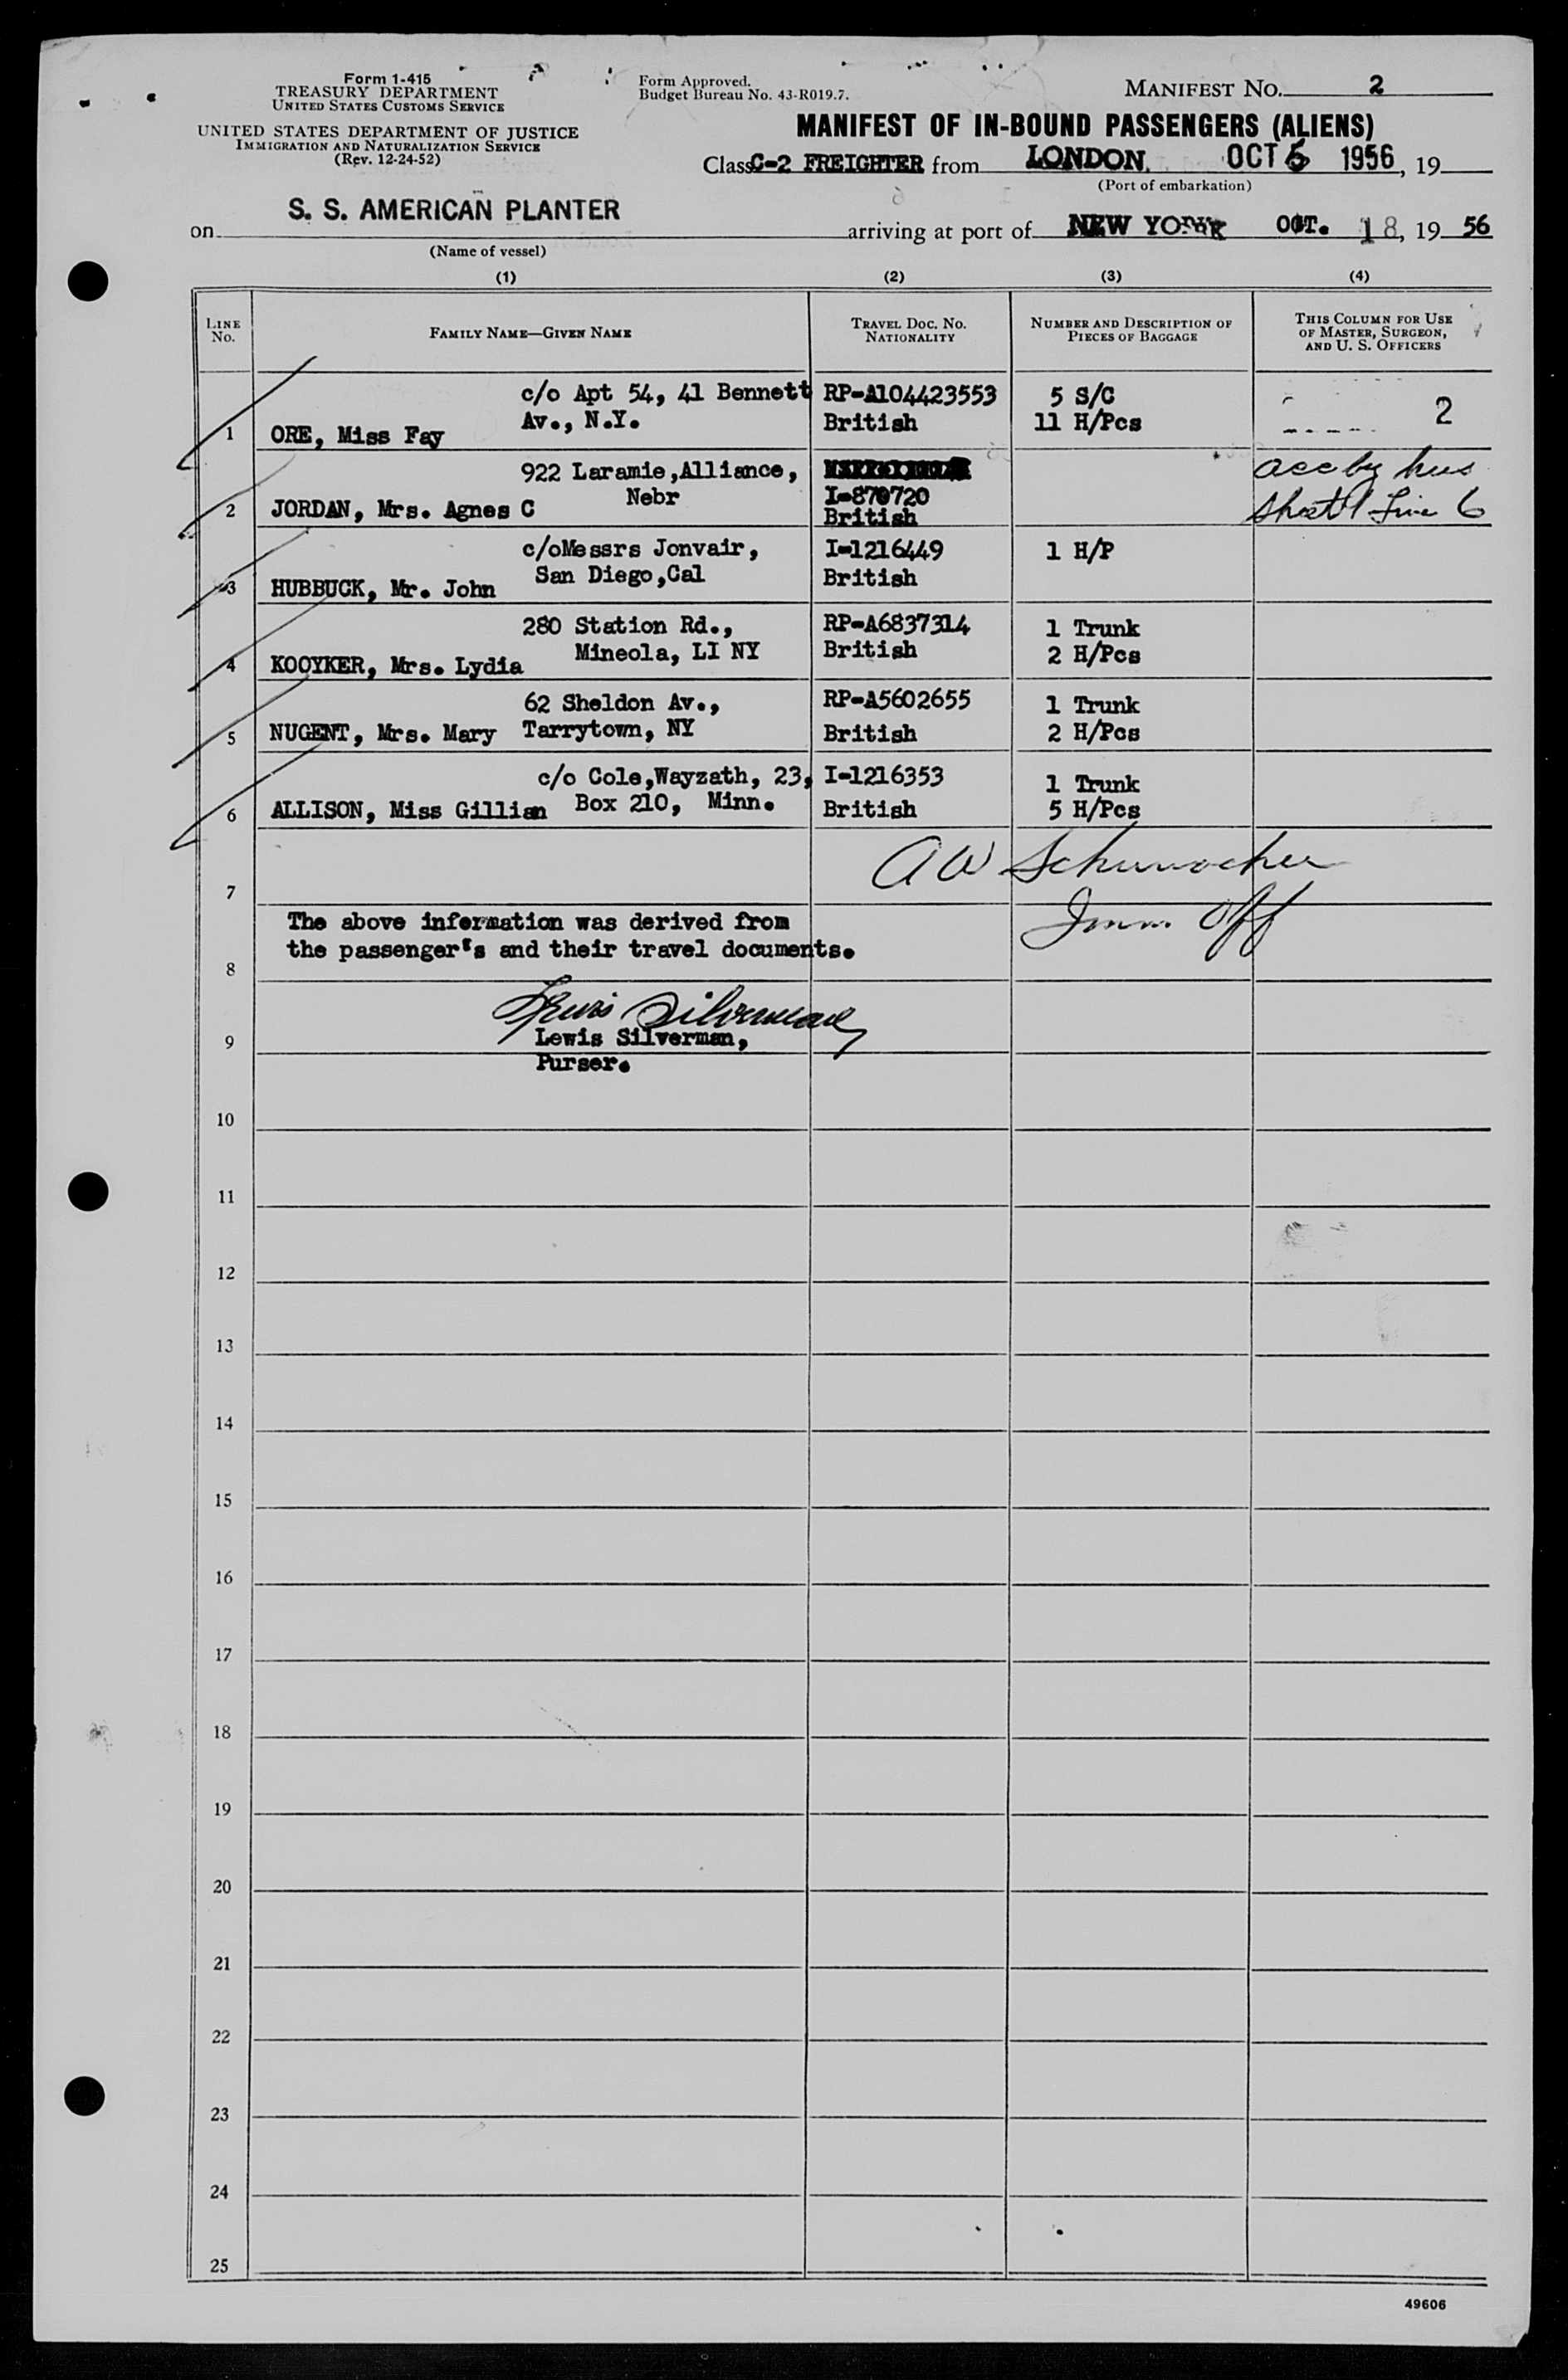 Form 1-415
TREASURY DEPARTMENT
UNITED STATES CUSTOMS SERVICE
UNITED STATES DEPARTMENT OF JUSTICE
IMMIGRATION AND NATURALIZATION SERVICE
(Rev. 12-24-52)
Form Approved.
Budget Bureau No. 43-R019.7.
MANIFEST NO. 2
MANIFEST OF IN-BOUND PASSENGERS (ALIENS)
Class C-2 FREIGHTER from LONDON. OCT 6 1956, 19
(Port of embarkation)
on S. S. AMERICAN PLANTER arriving at port of NEW YORK OCT. 18, 19 56
(Name of vessel)
(1) (2) (3) (4)
LINE No. FAMILY NAME—GIVEN NAME TRAVEL DOC. NO. NATIONALITY NUMBER AND DESCRIPTION OF PIECES OF BAGGAGE THIS COLUMN FOR USE OF MASTER, SURGEON, AND U. S. OFFICERS
c/o Apt 54, 41 Bennett RP-A104423553 5 S/C
Av., N.Y. British 11 H/Pcs 2
1 ORE, Miss Fay
922 Laramie,Alliance, acc by hus
Nebr I-870720
2 JORDAN, Mrs. Agnes C British Sheet 1 Line 6
c/oMessrs Jonvair, I-1216449 1 H/P
San Diego,Cal British
3 HUBBUCK, Mr. John
280 Station Rd., RP-A6837314 1 Trunk
Mineola, LI NY British 2 H/Pcs
4 KOOYKER, Mrs. Lydia
62 Sheldon Av., RP-A5602655 1 Trunk
5 NUGENT, Mrs. Mary Tarrytown, NY British 2 H/Pcs
c/o Cole,Wayzath, 23, I-1216353 1 Trunk
6 ALLISON, Miss Gillian Box 210, Minn. British 5 H/Pcs
A W Schumacher
7
Imm. Off
The above information was derived from
the passenger's and their travel documents.
8
Lewis Silverman
9 Lewis Silverman,
Purser.
10
11
12
13
14
15
16
17
18
19
20
21
22
23
24
25
49606